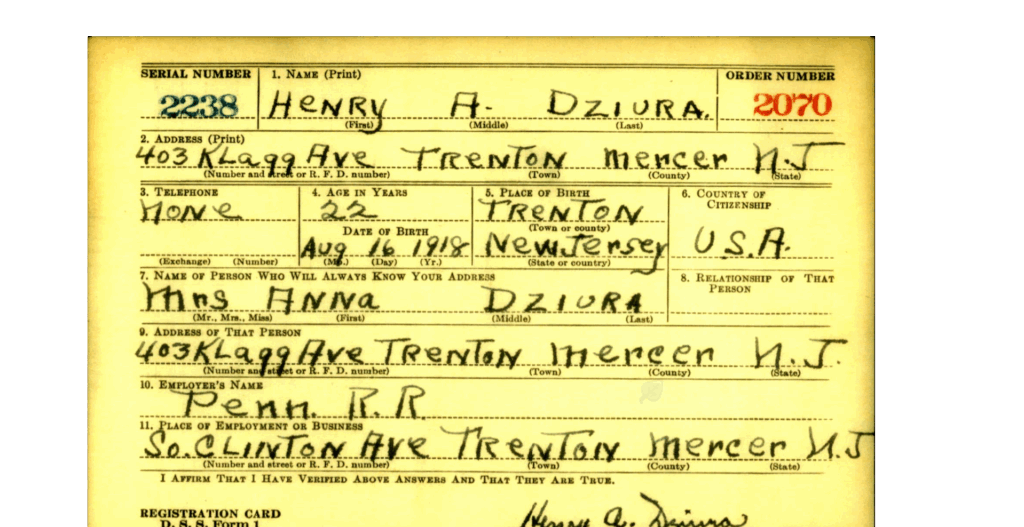 SERIAL NUMBER 1. NAME (Print) ORDER NUMBER
2238 HENRY A. DZIURA. 2070
(First) (Middle) (Last)
2. ADDRESS (Print)
403 KLagg Ave TRENTON mercer N.J
(Number and street or R. F. D. number) (Town) (County) (State)
3. TELEPHONE 4. AGE IN YEARS 5. PLACE OF BIRTH 6. COUNTRY OF
CITIZENSHIP
NONe 22 TRENTON
(Town or county)
DATE OF BIRTH
Aug 16 1918 New Jersey U.S.A.
(Exchange) (Number) (Mo.) (Day) (Yr.) (State or country)
7. NAME OF PERSON WHO WILL ALWAYS KNOW YOUR ADDRESS 8. RELATIONSHIP OF THAT
PERSON
Mrs ANNa DZIURA
(Mr., Mrs., Miss) (First) (Middle) (Last)
9. ADDRESS OF THAT PERSON
403 KLagg Ave TRENTON mercer N.J.
(Number and street or R. F. D. number) (Town) (County) (State)
10. EMPLOYER'S NAME
Penn. R.R.
11. PLACE OF EMPLOYMENT OR BUSINESS
So. CLINTON Ave TRENTON mercer N.J
(Number and street or R. F. D. number) (Town) (County) (State)
I AFFIRM THAT I HAVE VERIFIED ABOVE ANSWERS AND THAT THEY ARE TRUE.
REGISTRATION CARD
D. S. S. Form 1 Henry A. Dziura